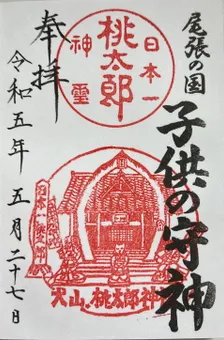 尾張の国
子供の守神
日本一
桃太郎
神霊
奉拝
令和五年 五月二十七日
犬山 桃太郎神